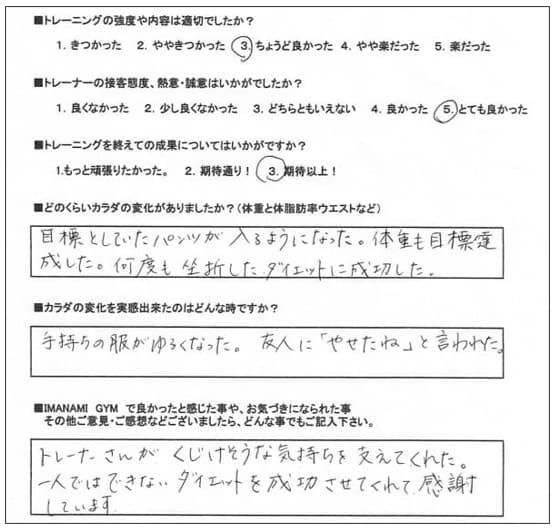 ■トレーニングの強度や内容は適切でしたか？
1. きつかった 2. ややきつかった 3. ちょうど良かった 4. やや楽だった 5. 楽だった
■トレーナーの接客態度、熱意・誠意はいかがでしたか？
1. 良くなかった 2. 少し良くなかった 3. どちらともいえない 4. 良かった 5. とても良かった
■トレーニングを終えての成果についてはいかがですか？
1.もっと頑張りたかった。 2. 期待通り！ 3. 期待以上！
■どのくらいカラダの変化がありましたか？（体重と体脂肪率ウエストなど）
目標としていたパンツが入るようになった。体重も目標達
成した。何度も坐折したダイエットに成功した。
■カラダの変化を実感出来たのはどんな時ですか？
手持ちの服がゆるくなった。友人に「やせたね」と言われた。
■IMANAMI GYM で良かったと感じた事や、お気づきになられた事
その他ご意見・ご感想などございましたら、どんな事でもご記入下さい。
トレーナーさんがくじけそうな気持ちを支えてくれた。
一人ではできないダイエットを成功させてくれて感謝
しています。